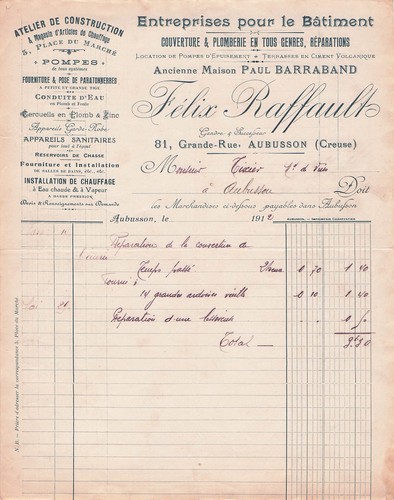 ATELIER DE CONSTRUCTION
& Magasin d'Articles de Chauffage
5, PLACE DU MARCHÉ
POMPES
de tous systèmes
FOURNITURE & POSE DE PARATONNERRES
A PETITE ET GRANDE TIGE
CONDUITE D'EAU
en Plomb et Fonte
Cercueils en Plomb & Zinc
Appareils Garde-Robe
APPAREILS SANITAIRES
pour tout à l'égout
RÉSERVOIRS DE CHASSE
Fourniture et Installation
DE SALLES DE BAINS, ETC., ETC.
INSTALLATION DE CHAUFFAGE
à Eau chaude & à Vapeur
A BASSE PRESSION
Devis & Renseignements sur Demande
Entreprises pour le Bâtiment
COUVERTURE & PLOMBERIE EN TOUS GENRES, RÉPARATIONS
LOCATION DE POMPES D'ÉPUISEMENT - TERRASSES EN CIMENT VOLCANIQUE
Ancienne Maison PAUL BARRABAND
Félix Raffault
Gendre & Successeur
81, Grande-Rue. AUBUSSON (Creuse)
Monsieur Tixier
à Aubusson Doit
les Marchandises ci-dessous payables dans Aubusson
Aubusson, le 1912
AUBUSSON. - IMPRIMERIE
Réparation de la couverture de
Temps passé 2 heures 0 70 1 40
Fourni
14 grandes ardoises 0 10 1 40
Réparation d'une
Total
N.-B. - Prière d'adresser la correspondance 5, Place du Marché